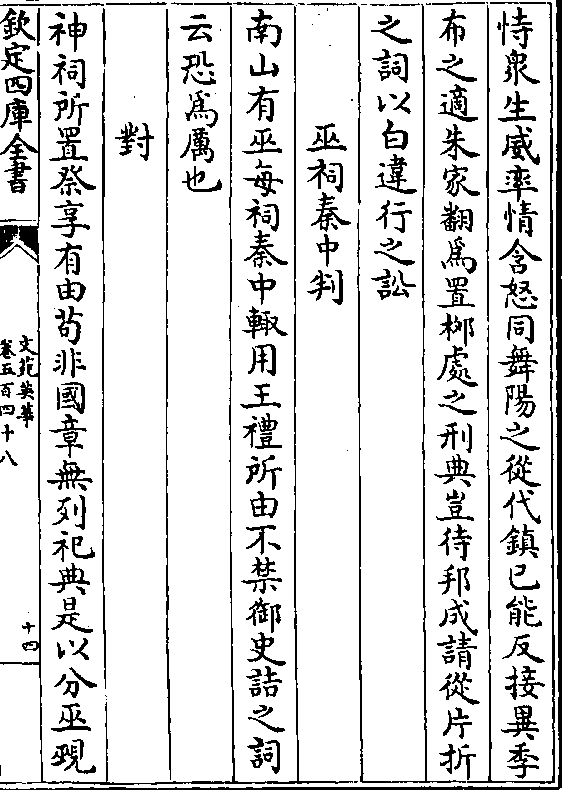 恃衆生威率情含怒同舞陽之從代鎮已能反接異季
布之適朱家翻爲置栁處之刑典豈待邦成請從片折
之詞以白違行之訟
巫祠秦中判
南山有巫每祠秦中輙用王禮所由不禁御史詰之詞
云恐爲厲也
對
神祠所置祭享有由苟非國章無列祀典是以分巫覡
欽定四庫全書
文苑英華
卷五百四十八
十四